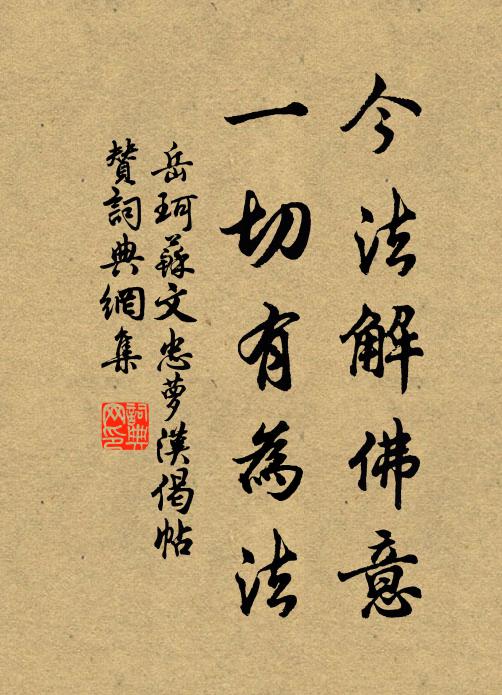 今法解佛意
一切有為法
岳珂蘇文忠夢漢偈帖
贊詞典網集
詞典网印